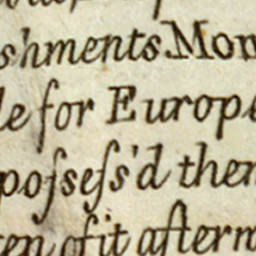 shments Mon
le for Europe
poſseſs'd then
en of it afterw